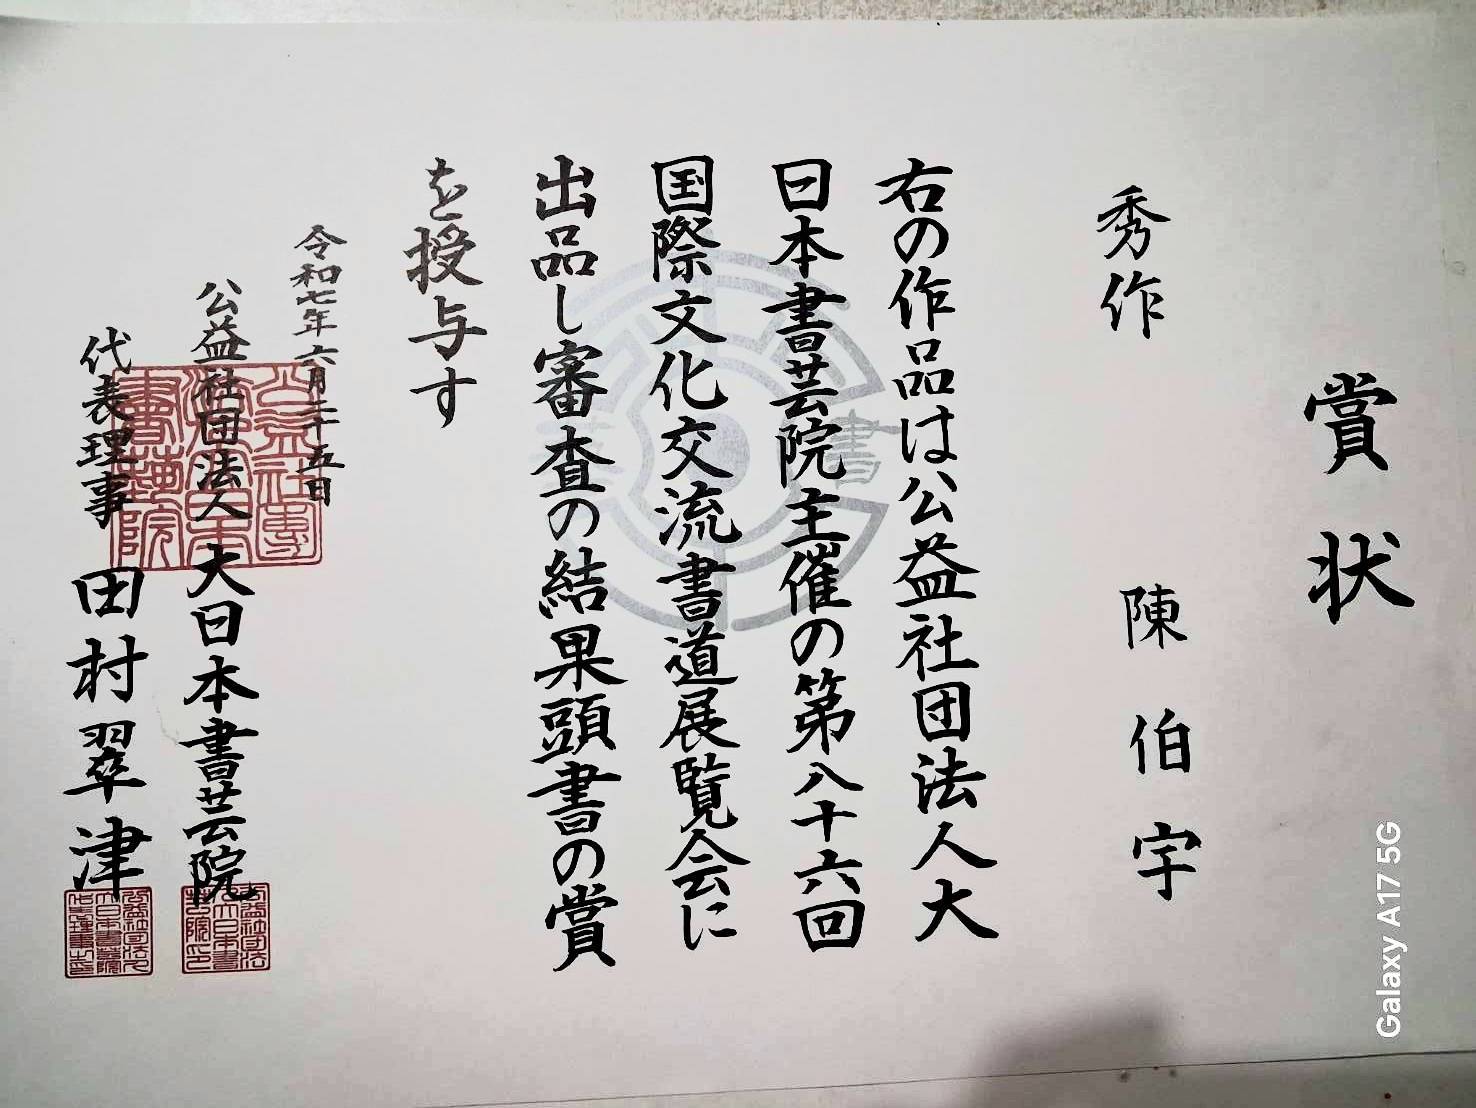 賞状
秀作 陳伯宇
右の作品は公益社団法人大
日本書芸院主催の第八十六回
国際文化交流書道展覧会に
出品し審査の結果頭書の賞
を授与す
令和七年六月二十五日
公益社団法人 大日本書芸院
代表理事 田村翠津
書
Galaxy A17 5G